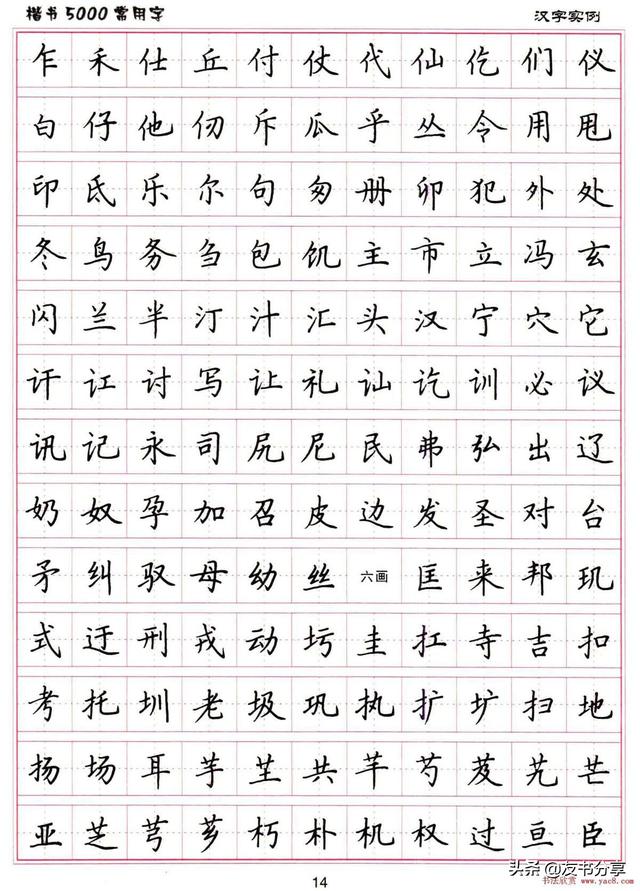 楷书5000常用字 汉字实例
乍 禾 仕 丘 付 仗 代 仙 仡 们 仪
白 仔 他 仞 斥 瓜 乎 丛 令 用 甩
印 氐 乐 尔 句 匆 册 卯 犯 外 处
冬 鸟 务 刍 包 饥 主 市 立 冯 玄
闪 兰 半 汀 汁 汇 头 汉 宁 穴 它
讦 讧 讨 写 让 礼 讪 讫 训 必 议
讯 记 永 司 尻 尼 民 弗 弘 出 辽
奶 奴 孕 加 召 皮 边 发 圣 对 台
矛 纠 驭 母 幼 丝 六画 匡 耒 邦 玑
式 迂 刑 戎 动 圬 圭 扛 寺 吉 扣
考 托 圳 老 圾 巩 执 扩 圹 扫 地
扬 场 耳 芋 芏 共 芊 芍 芨 艽 芒
亚 芝 芎 芗 朽 朴 机 权 过 亘 臣
14
头条 @友书分享
书法欣赏 www.yac8.com